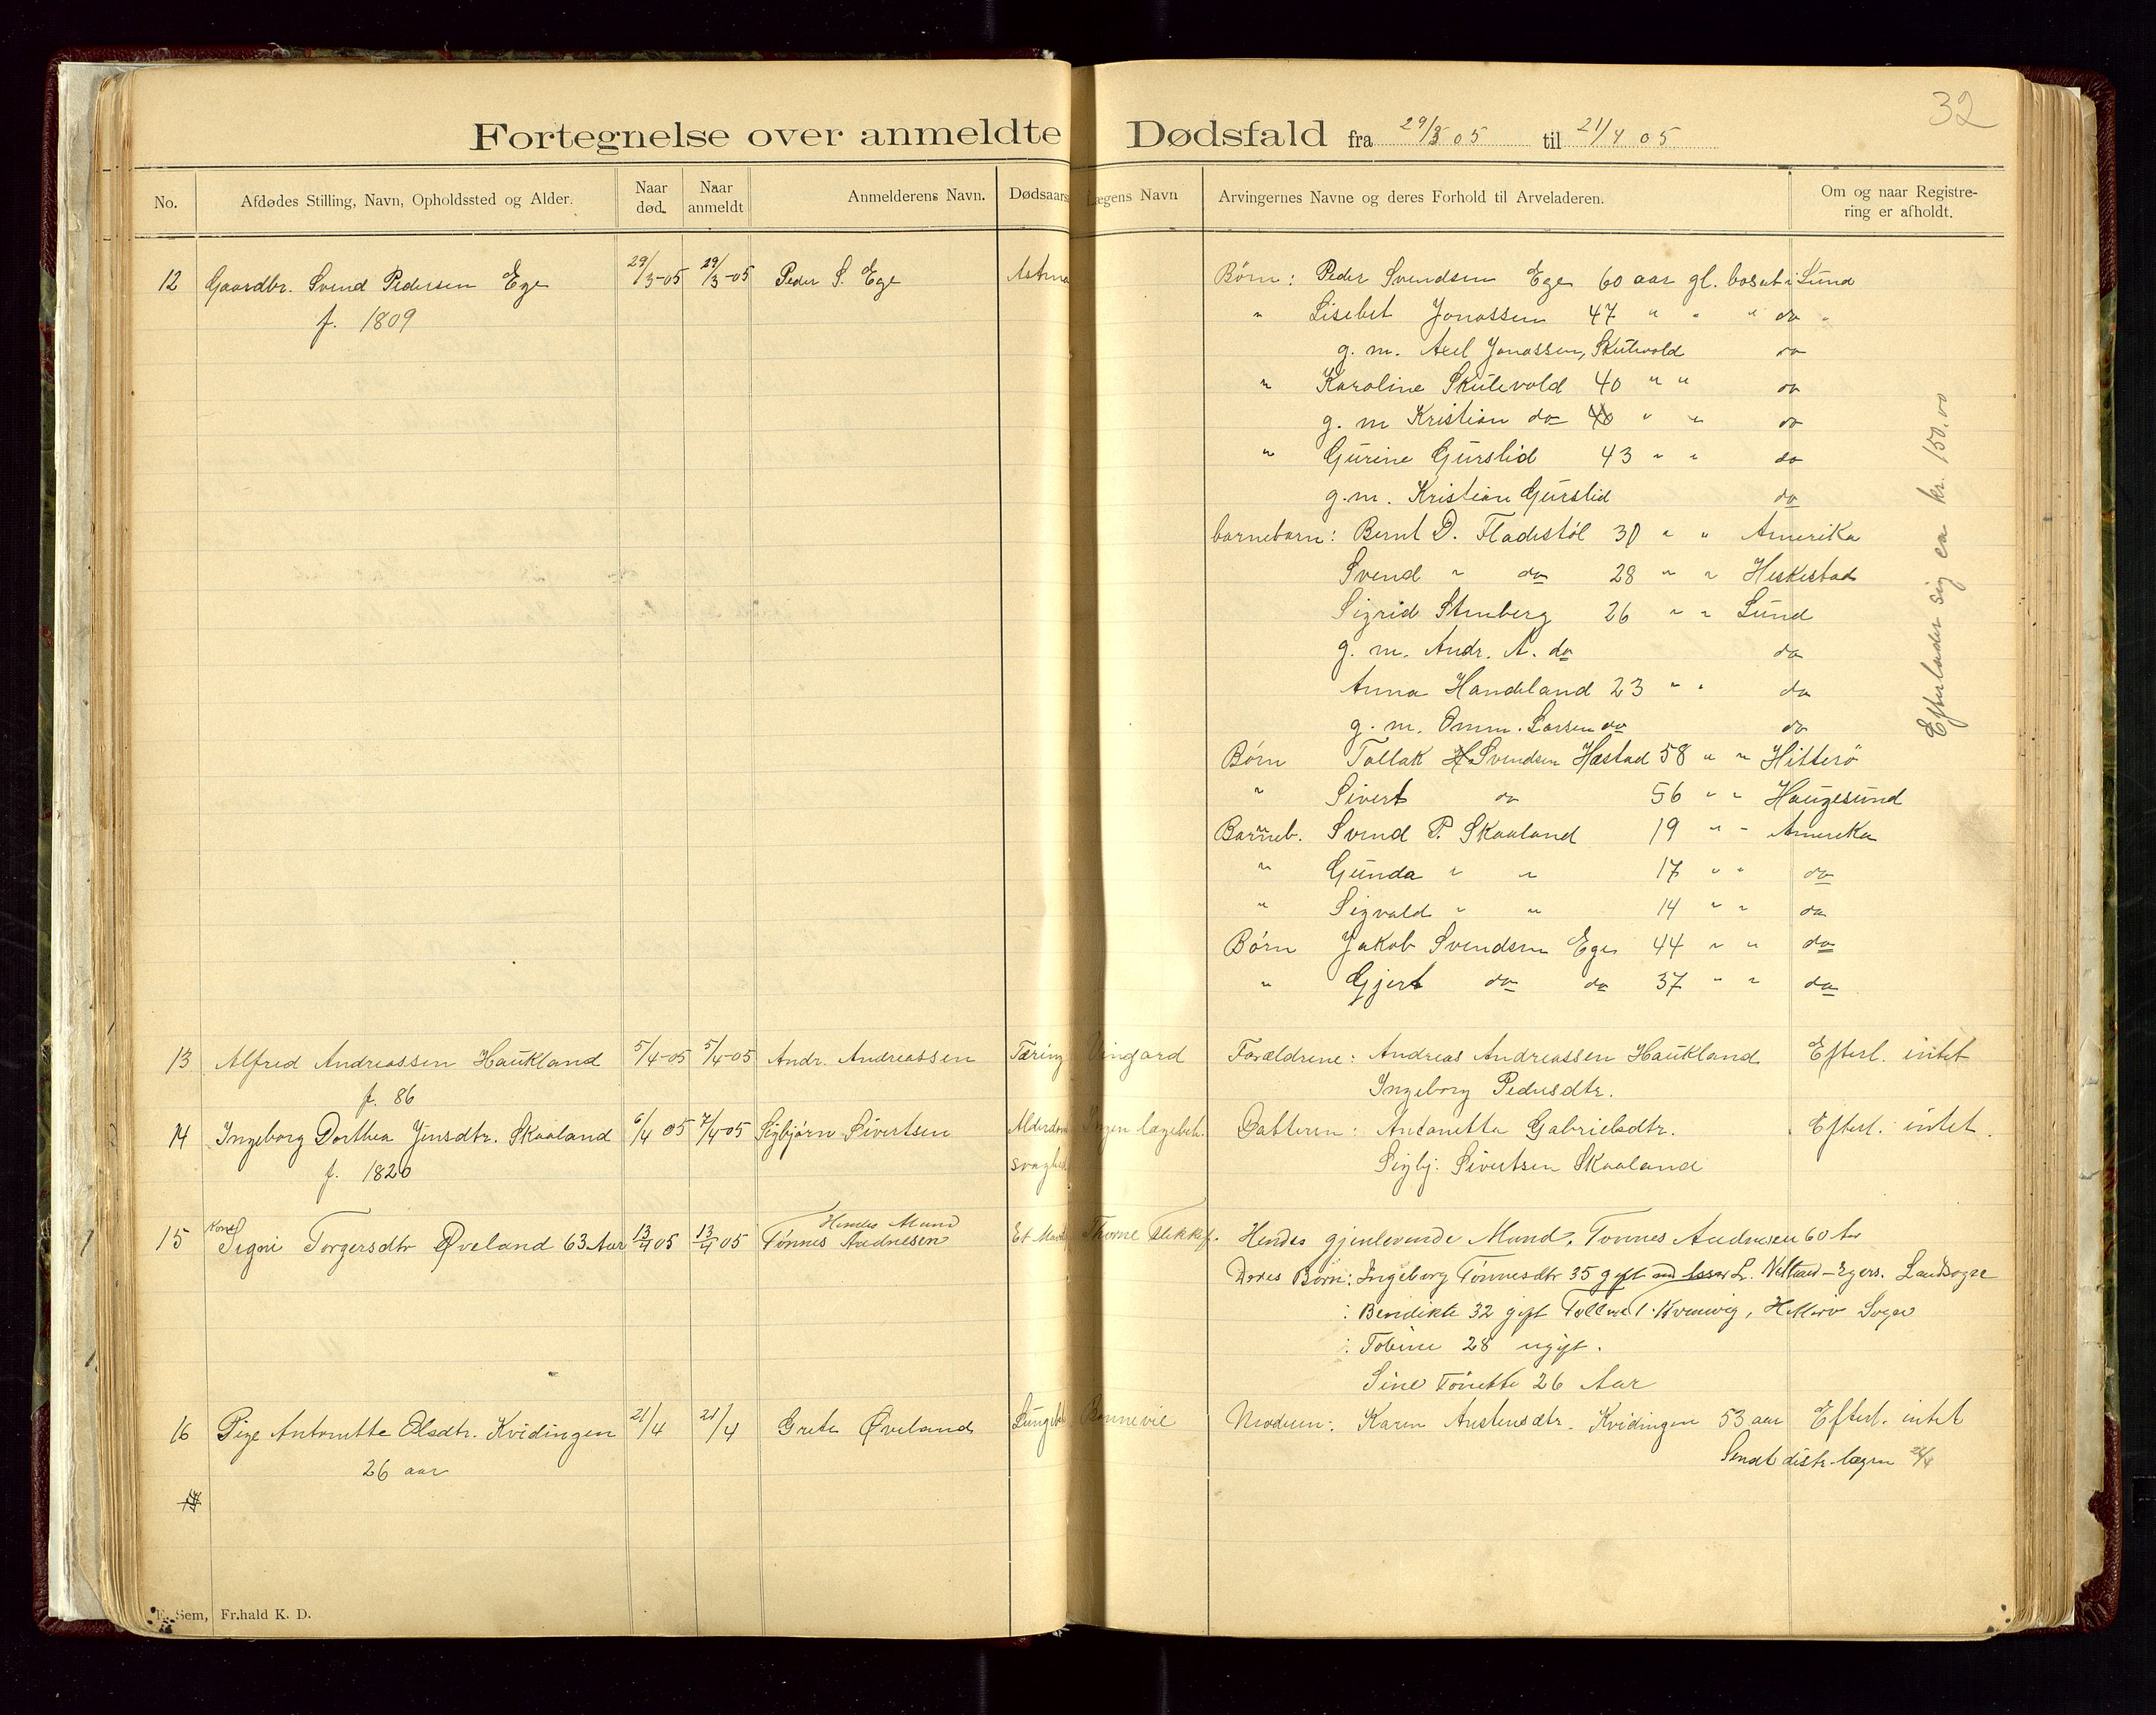 32
Fortegnelse over anmeldte Dødsfald fra 29/3 05 til 21/4 05
No. Afdødes Stilling, Navn, Opholdssted og Alder. Naar død. Naar anmeldt Anmelderens Navn. Dødsaars Lægens Navn Arvingernes Navne og deres Forhold til Arveladeren. Om og naar Registrering er afholdt.
12 Gaardbr. Svend Pedersen Ege 29/3-05 29/3-05 Peder S. Ege Astma Børn: Peder Svendsen Ege 60 aar gl. bosat i Lund
f. 1809 " Lisebet Jonassen 47 " " " do "
g. m. Axel Jonassen, Skutevold do
" Karoline Skulevold 40 " " do
g. m Kristian do " " do
" Gurine Gurslid 43 " " do
g. m. Kristian Gurslid do
barnebarn: Bernt D. Fladestøl 30 " " Amerika
Svend " do 28 " " Heskestad
Sigrid Stenberg 26 " " Lund
g. m. Andr. A. do do
Anna Handeland 23 " " do
g. m. Omm. Larsen do do
Børn Tollak Svendsen Hæstad 58 " " Hitterö
" Sivert do 56 " " Haugesund
Barneb. Svend P. Skaaland 19 " " Amerika
" Gunda " " 17 " " do
" Sigvald " " 14 " " do
Børn Jakob Svendsen Ege 44 " " do
" Gjert do do 37 " " do
Efterlader sig ca kr. 150.00
13 Alfred Andreassen Haukland 5/4-05 5/4-05 Andr. Andreassen Tæring Vingard Forældrene: Andreas Andreassen Haukland Efterl. intet
f. 86 Ingeborg Pedersdtr.
14 Ingeborg Dorthea Jensdtr. Skaaland 6/4 05 7/4-05 Sigbjørn Sivertsen Alderdoms Ingen lægebeh. Datteren: Antonette Gabrielsdtr. Efterl. intet.
f. 1820 svaghed Sigbj. Sivertsen Skaaland
15 Kone Signi Torgersdtr Øveland 63 Aar 13/4 05 13/4 05 Hendes Mand Tønnes Andresen Thorne Flekkef. Hendes gjenlevende Mand, Tonnes Andresen 60 Aar
Deres Børn: Ingeborg Tønnesdtr 35 gift L. - Egers. Landsogn
: Bendikte 32 gift Hitterö Sogn
: Tobine 28 ugift.
Sine Tönette 26 Aar
16 Pige Antonette Olsdtr. Kvidingen 21/4 21/4 Grete Øveland Lungebet Bonnevie Moderen: Karen Austensdtr. Kvidingen 53 aar Efterl. intet
26 aar Sendt distr-lægen
E. Sem, Fr.hald K. D.